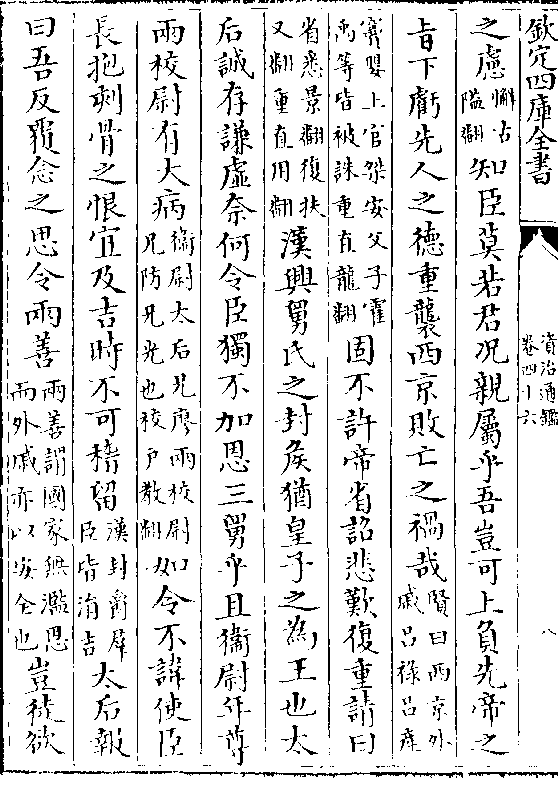 欽定四庫全書
資治通鑑
卷四十六
八
之慮
懈古
隘翻
知臣莫若君况親屬乎吾豈可上負先帝之
旨下虧先人之德重襲西京敗亡之禍哉
賢曰西京外
戚吕禄吕産
竇嬰上官桀安父子霍
禹等皆被誅重直龍翻
固不許帝省詔悲歎復重請曰
省悉景翻復扶
又翻重直用翻
漢興舅氏之封矦猶皇子之為王也太
后誠存謙虚奈何令臣獨不加恩三舅乎且衞尉年尊
兩校尉有大病
衞尉太后兄廖兩校尉
兄防兄光也校户教翻
如令不諱使臣
長抱刺骨之恨宜及吉時不可稽留
漢封爵羣
臣皆涓吉
太后報
曰吾反覆念之思令兩善
兩善謂國家無濫恩
而外戚亦以安全也
豈徒欲